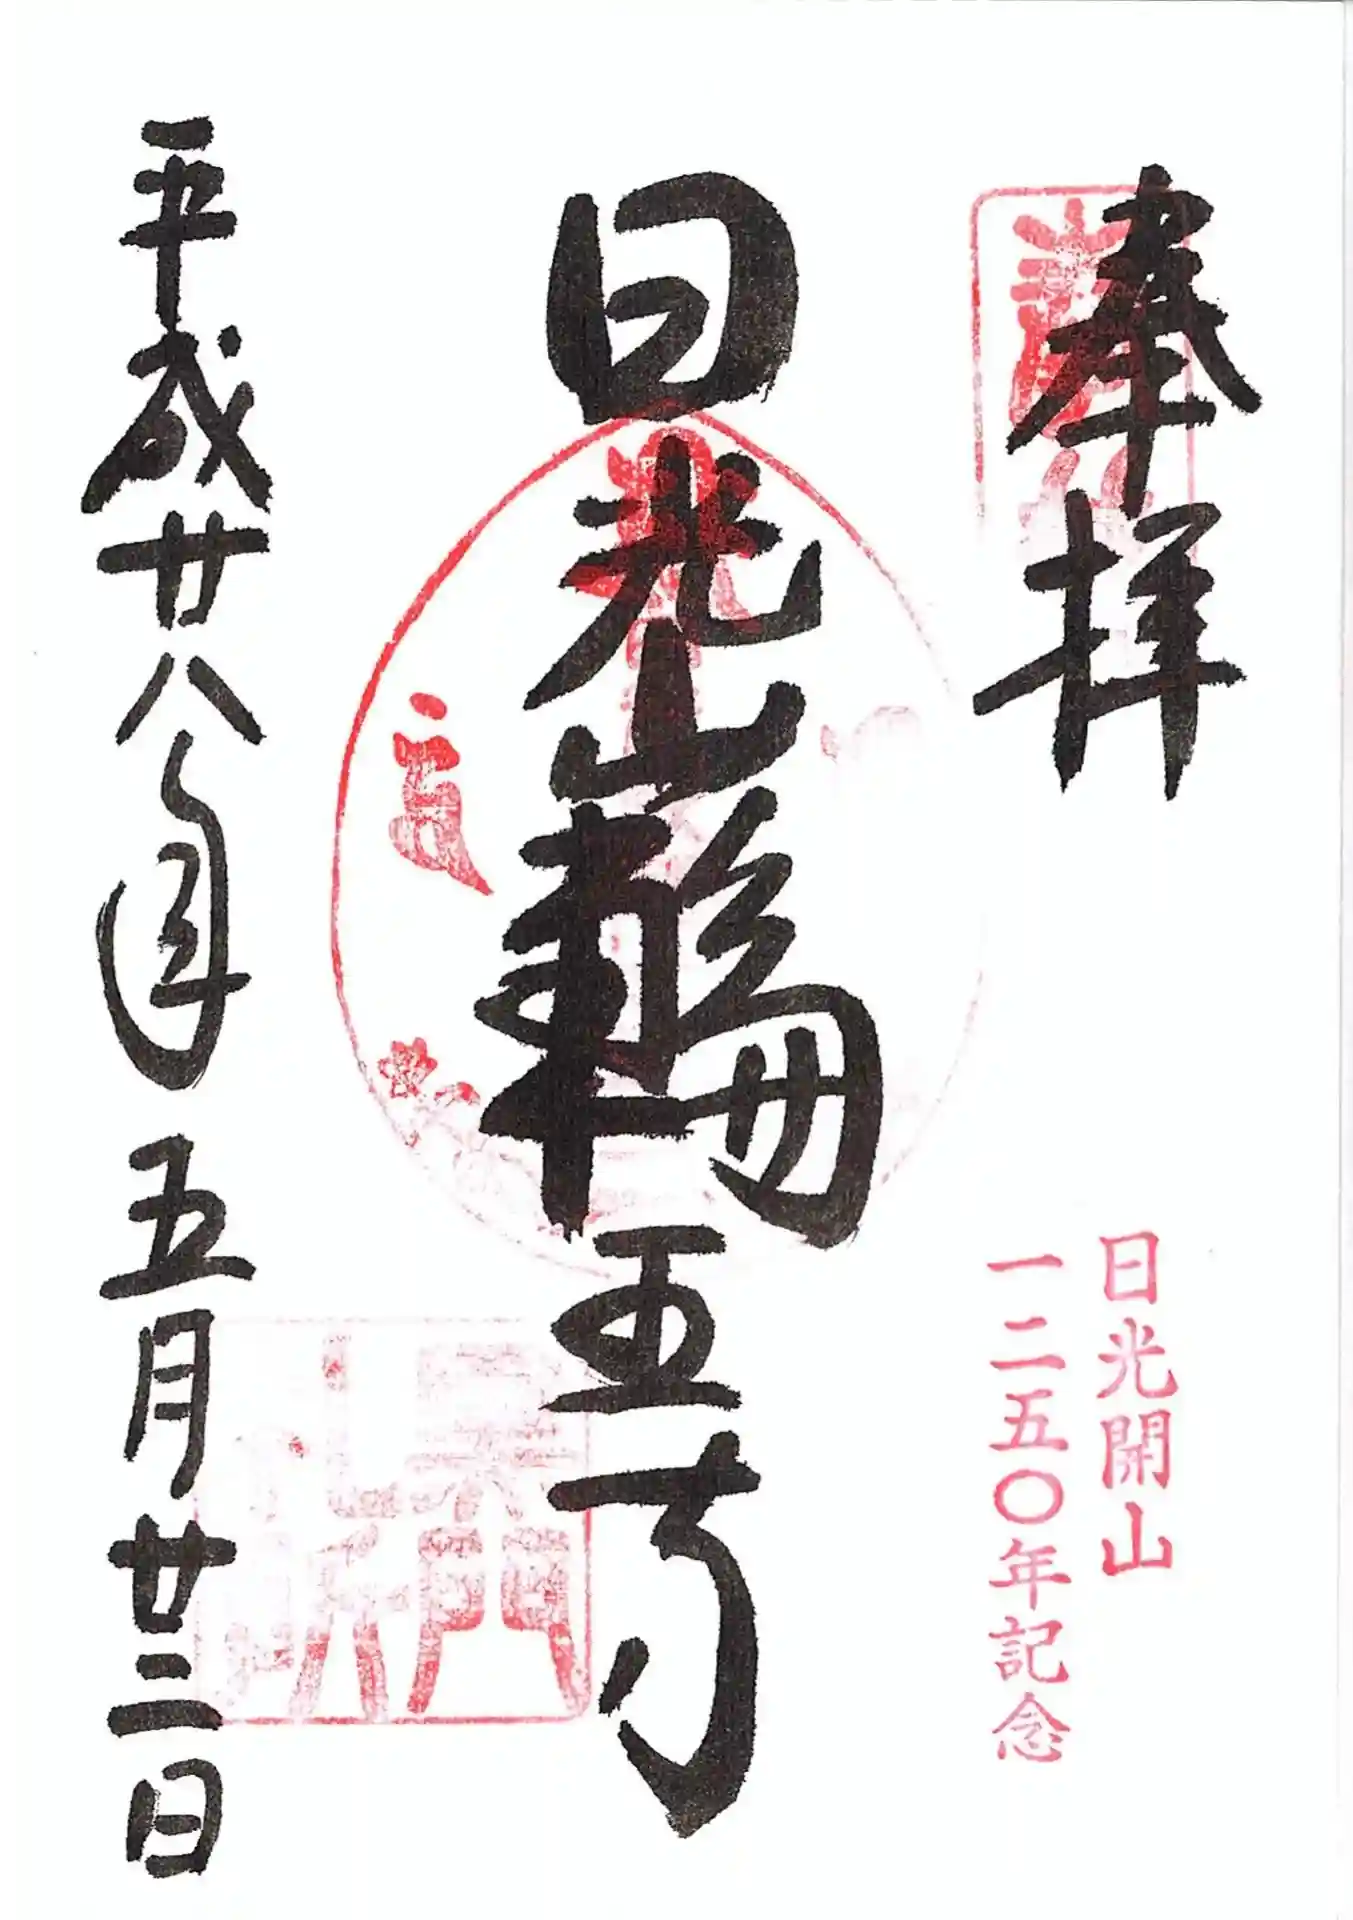 奉拝
日光開山
一二五〇年記念
日光山輪王寺
平成廿八年五月廿三日